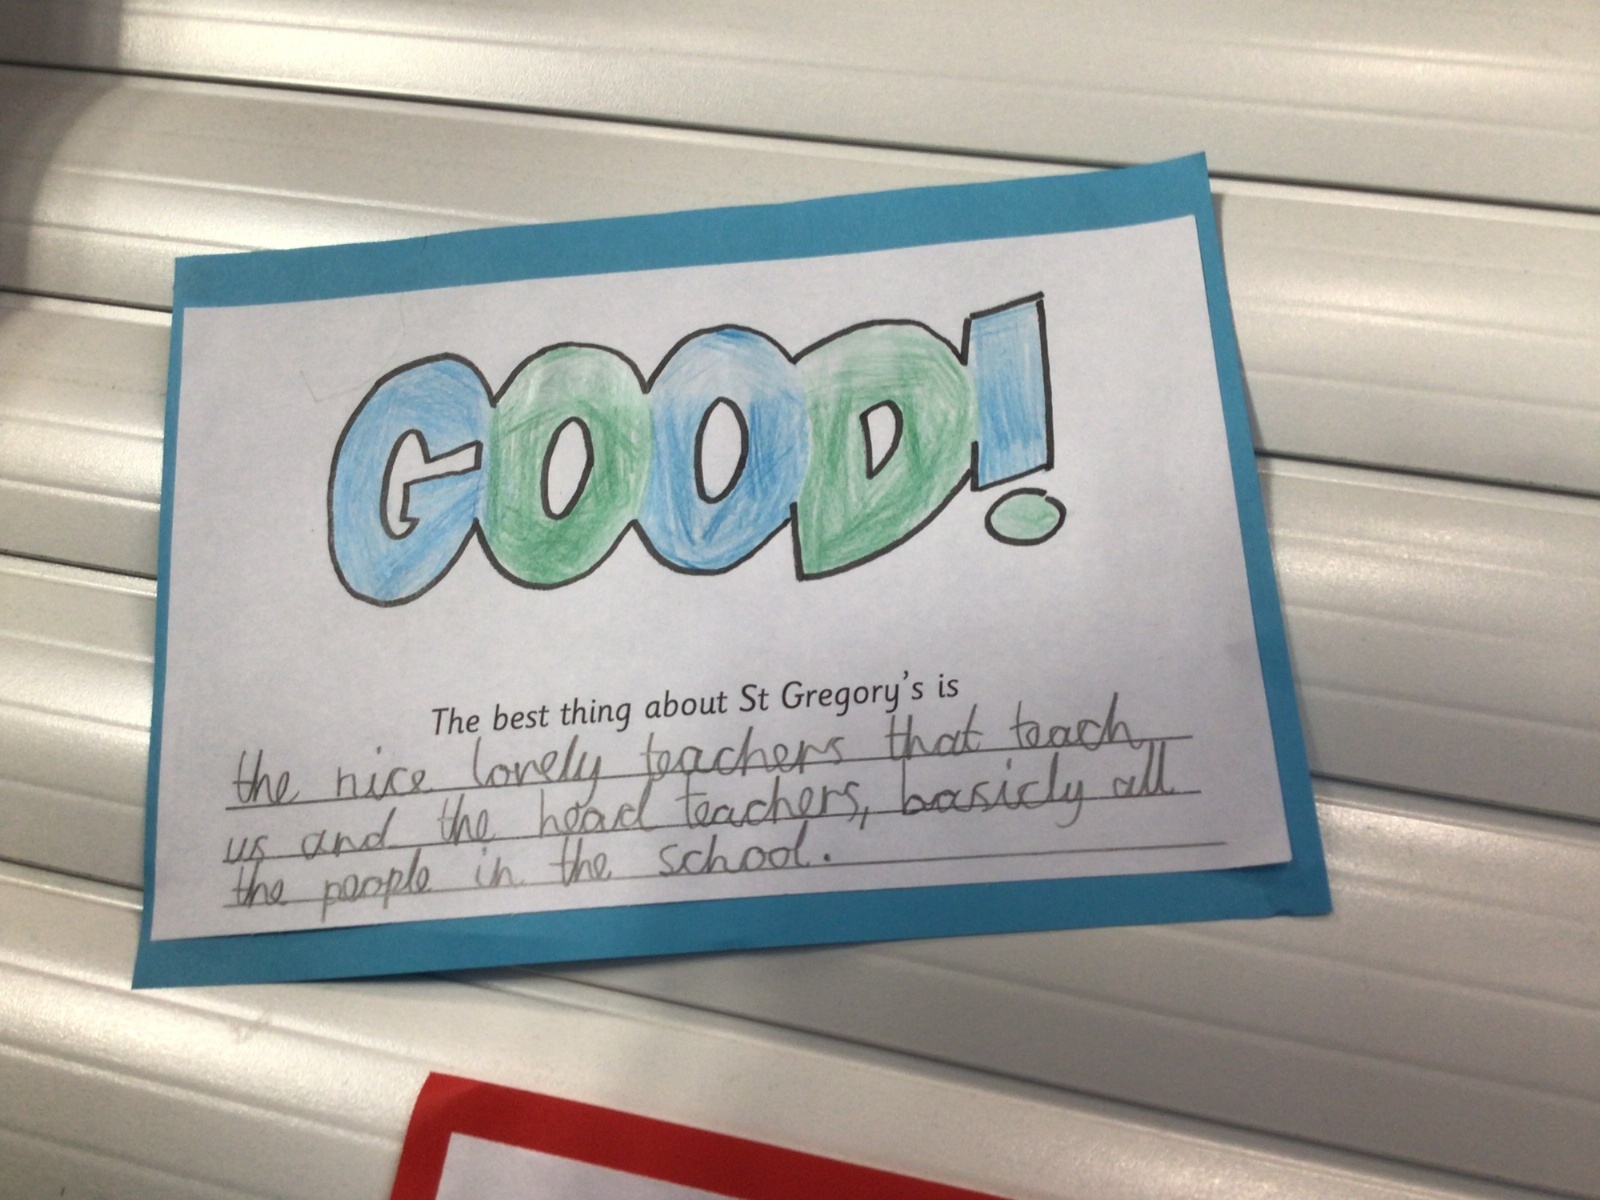 GOOD!
The best thing about St Gregory's is
the nice lovely teachers that teach
us and the head teachers, basicly all
the people in the school.